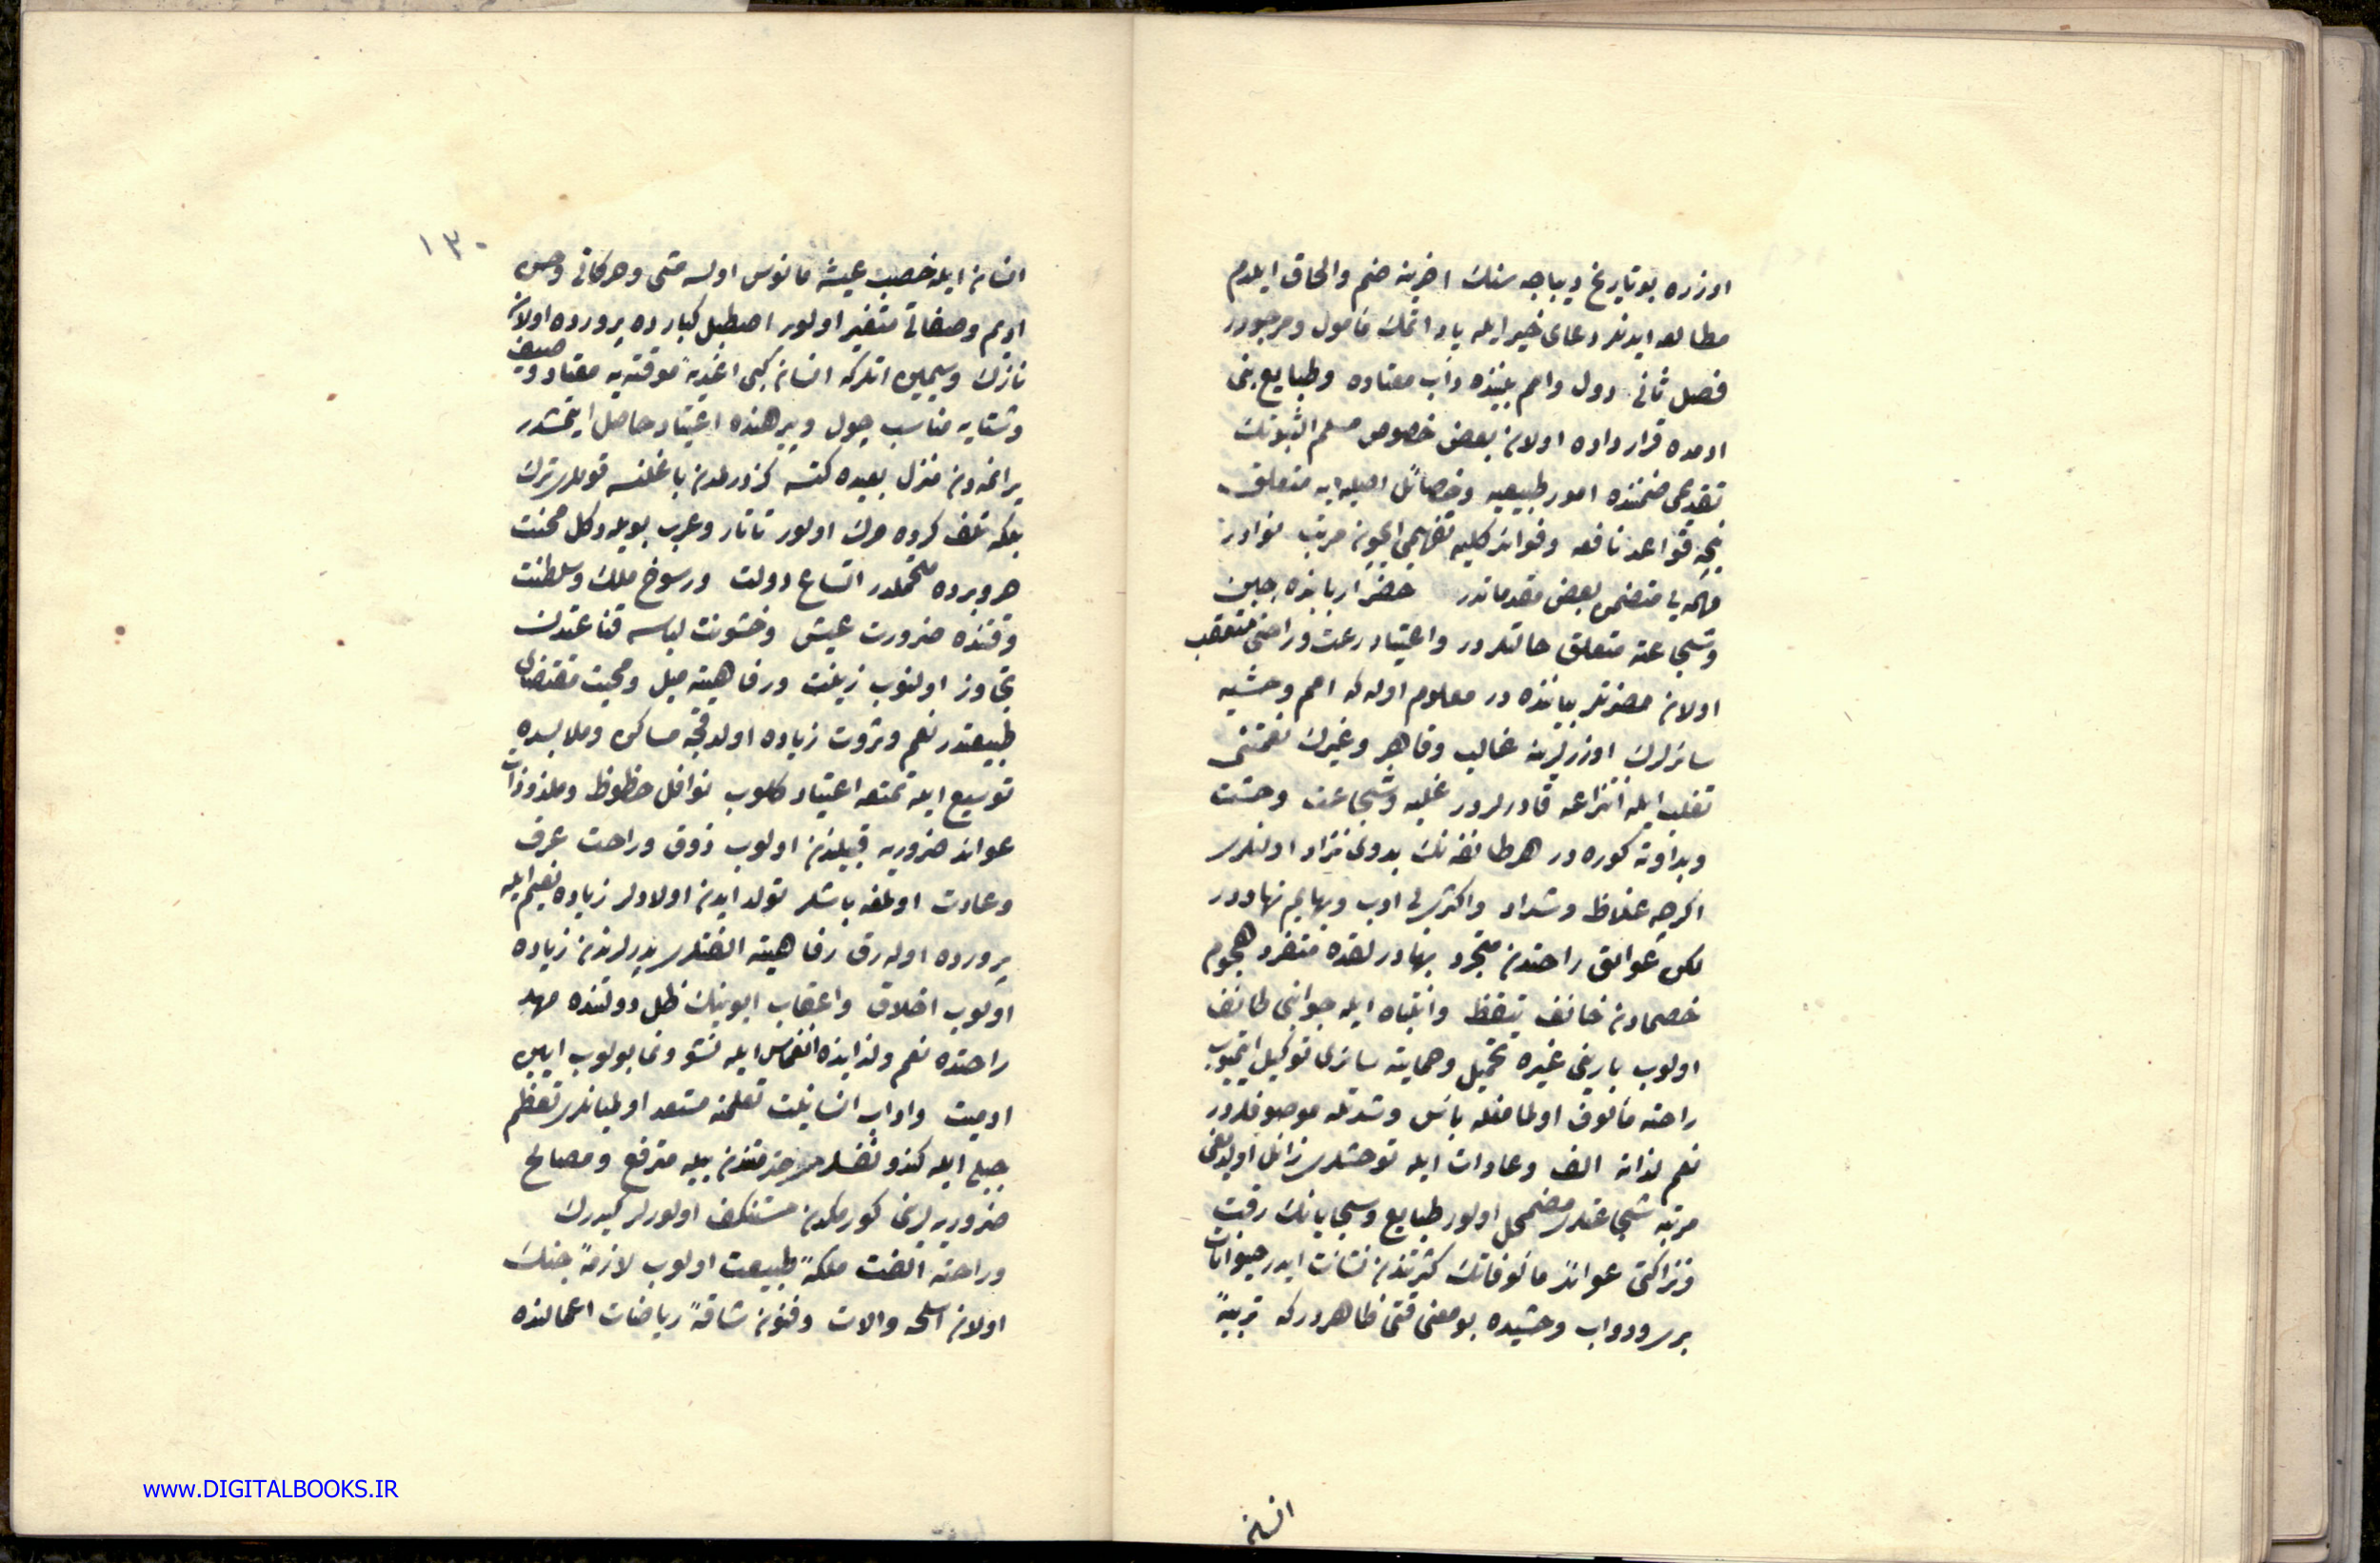 اوزره بو تاریخ دیباجه سنك اخرینه ضم والحاق ایلدم
مطالعه ایدنلر دعای خیر ایله یاد اتمك مأمول ومرجودر
فصل ثانی دول وامم بیننده دأب معتاده وطبایع بنی
ادمده قرارداده اولان بعض خصوص مسلم الثبوتك
تقدیمی ضمننده امور طبیعیه وخصائل اصلیه یه متعلق
نیجه قواعد نافعه وفوائد كلیه تفهیمی ایچون مرتب نوادر
مهمه یی متضمن بعض مقدماتدر حضر اربابنده جبن
وشجاعته متعلق حالتلردر واعتیاد رعت وراحتی متعقب
اولان مضرتلر بیاننده در معلوم اوله كه امم وحشیه
سائرلرك اوزرلرینه غالب وقاهر وغیرك نعمتنی
تغلب ایله انتزاعه قادرلردر غلبه وشجاعت وحشت
وبداوته كوره در هر طائفه نك بدوی نژاد اولنلری
اكرچه غلاظ وشداد واكثری بی ادب وبهایم نهاددر
لكن عوایق راحتدن متجرد بهادرلقده متفرد هجوم
خصمادن خائف تیقظ وانتباه ایله جوانبی طائف
اولوب بارینی غیره تحمیل وحمایته سائری توكیل ایتمیوب
راحته مألوف اولمامغله بأس وشدتله موصوفلردر
نعم لذاته الف وعادات ایله توحشلری زائل اولدیغی
مرتبه شجاعتلری مضمحل اولور طبایع وسجایانك رقت
ونزاكتی عوائد مألوفاتك كثرتندن نشأت ایدر حیوانات
بری ودواب وحشیده بو معنی قتی ظاهردركه تربیهٔ
انسان
١٣٠
انسان ایله خصب عیشه مأنوس اولسه مشی وحركاتی وحسن
ادیم وصفاتی متغیر اولور اصطبل كبارده پرورده اولان
نازك وسیمین اتلركه انسان كبی اغذیهٔ موقته یه معتاد وصیف
وشتایه مناسب چول وپیرهنده اعتیاد حاصل ایتمشدر
براغردن منزل بعیده كتسه باغلنسه قویلری ترك
بلكه تلف كرده مرك اولور تاتار وعرب بویله دكل محنت
هر وبرده متحملدر اتساع دولت ورسوخ ملك وسلطنت
وقتنده ضرورت عیش وخشونت لباسه قناعتدن
تجاوز اولنوب زینت ورفاهیته میل ومحبت مقتضای
طبیعتدر نعم وثروت زیاده اولدقجه مساكن وملابسده
توسیع ایله تمتعه اعتیاد كلوب نوافل حظوظ وملذوذات
عوائد ضروریه قبیلندن اولوب ذوق وراحت عرف
وعادت اولمغه باشلر تولد ایدن اولادلر زیاده نعیم ایله
پرورده اوله رق رفاهیته الفتلری پدرلرندن زیاده
اولوب اخلاق واعقاب ابوینك ظل دولتنده مهد
راحتده نعم ولذایذه انغماس ایله نشو ونما بولوب ایین
ادمیت واداب انسانیت تعلمنه مستعد اولمیانلری تعظم
جبلی ایله كندو نفسلری خدمتندن بیله مترفع ومصالح
ضروریه لرینی كورمكدن مستنكف اولورلر كیدرك
وراحته الفت ملكهٔ طبیعت اولوب لازمهٔ جنك
اولان اسلحه والات وفنون شاقهٔ ریاضات اعمالنده
www.DIGITALBOOKS.IR